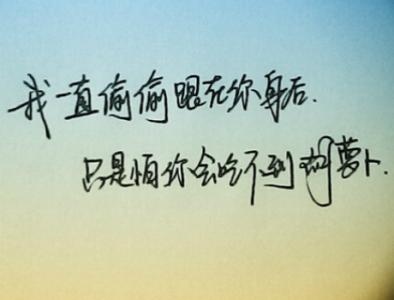 我一直偷偷跟在你身后.
只是怕你会吃不到胡萝卜.